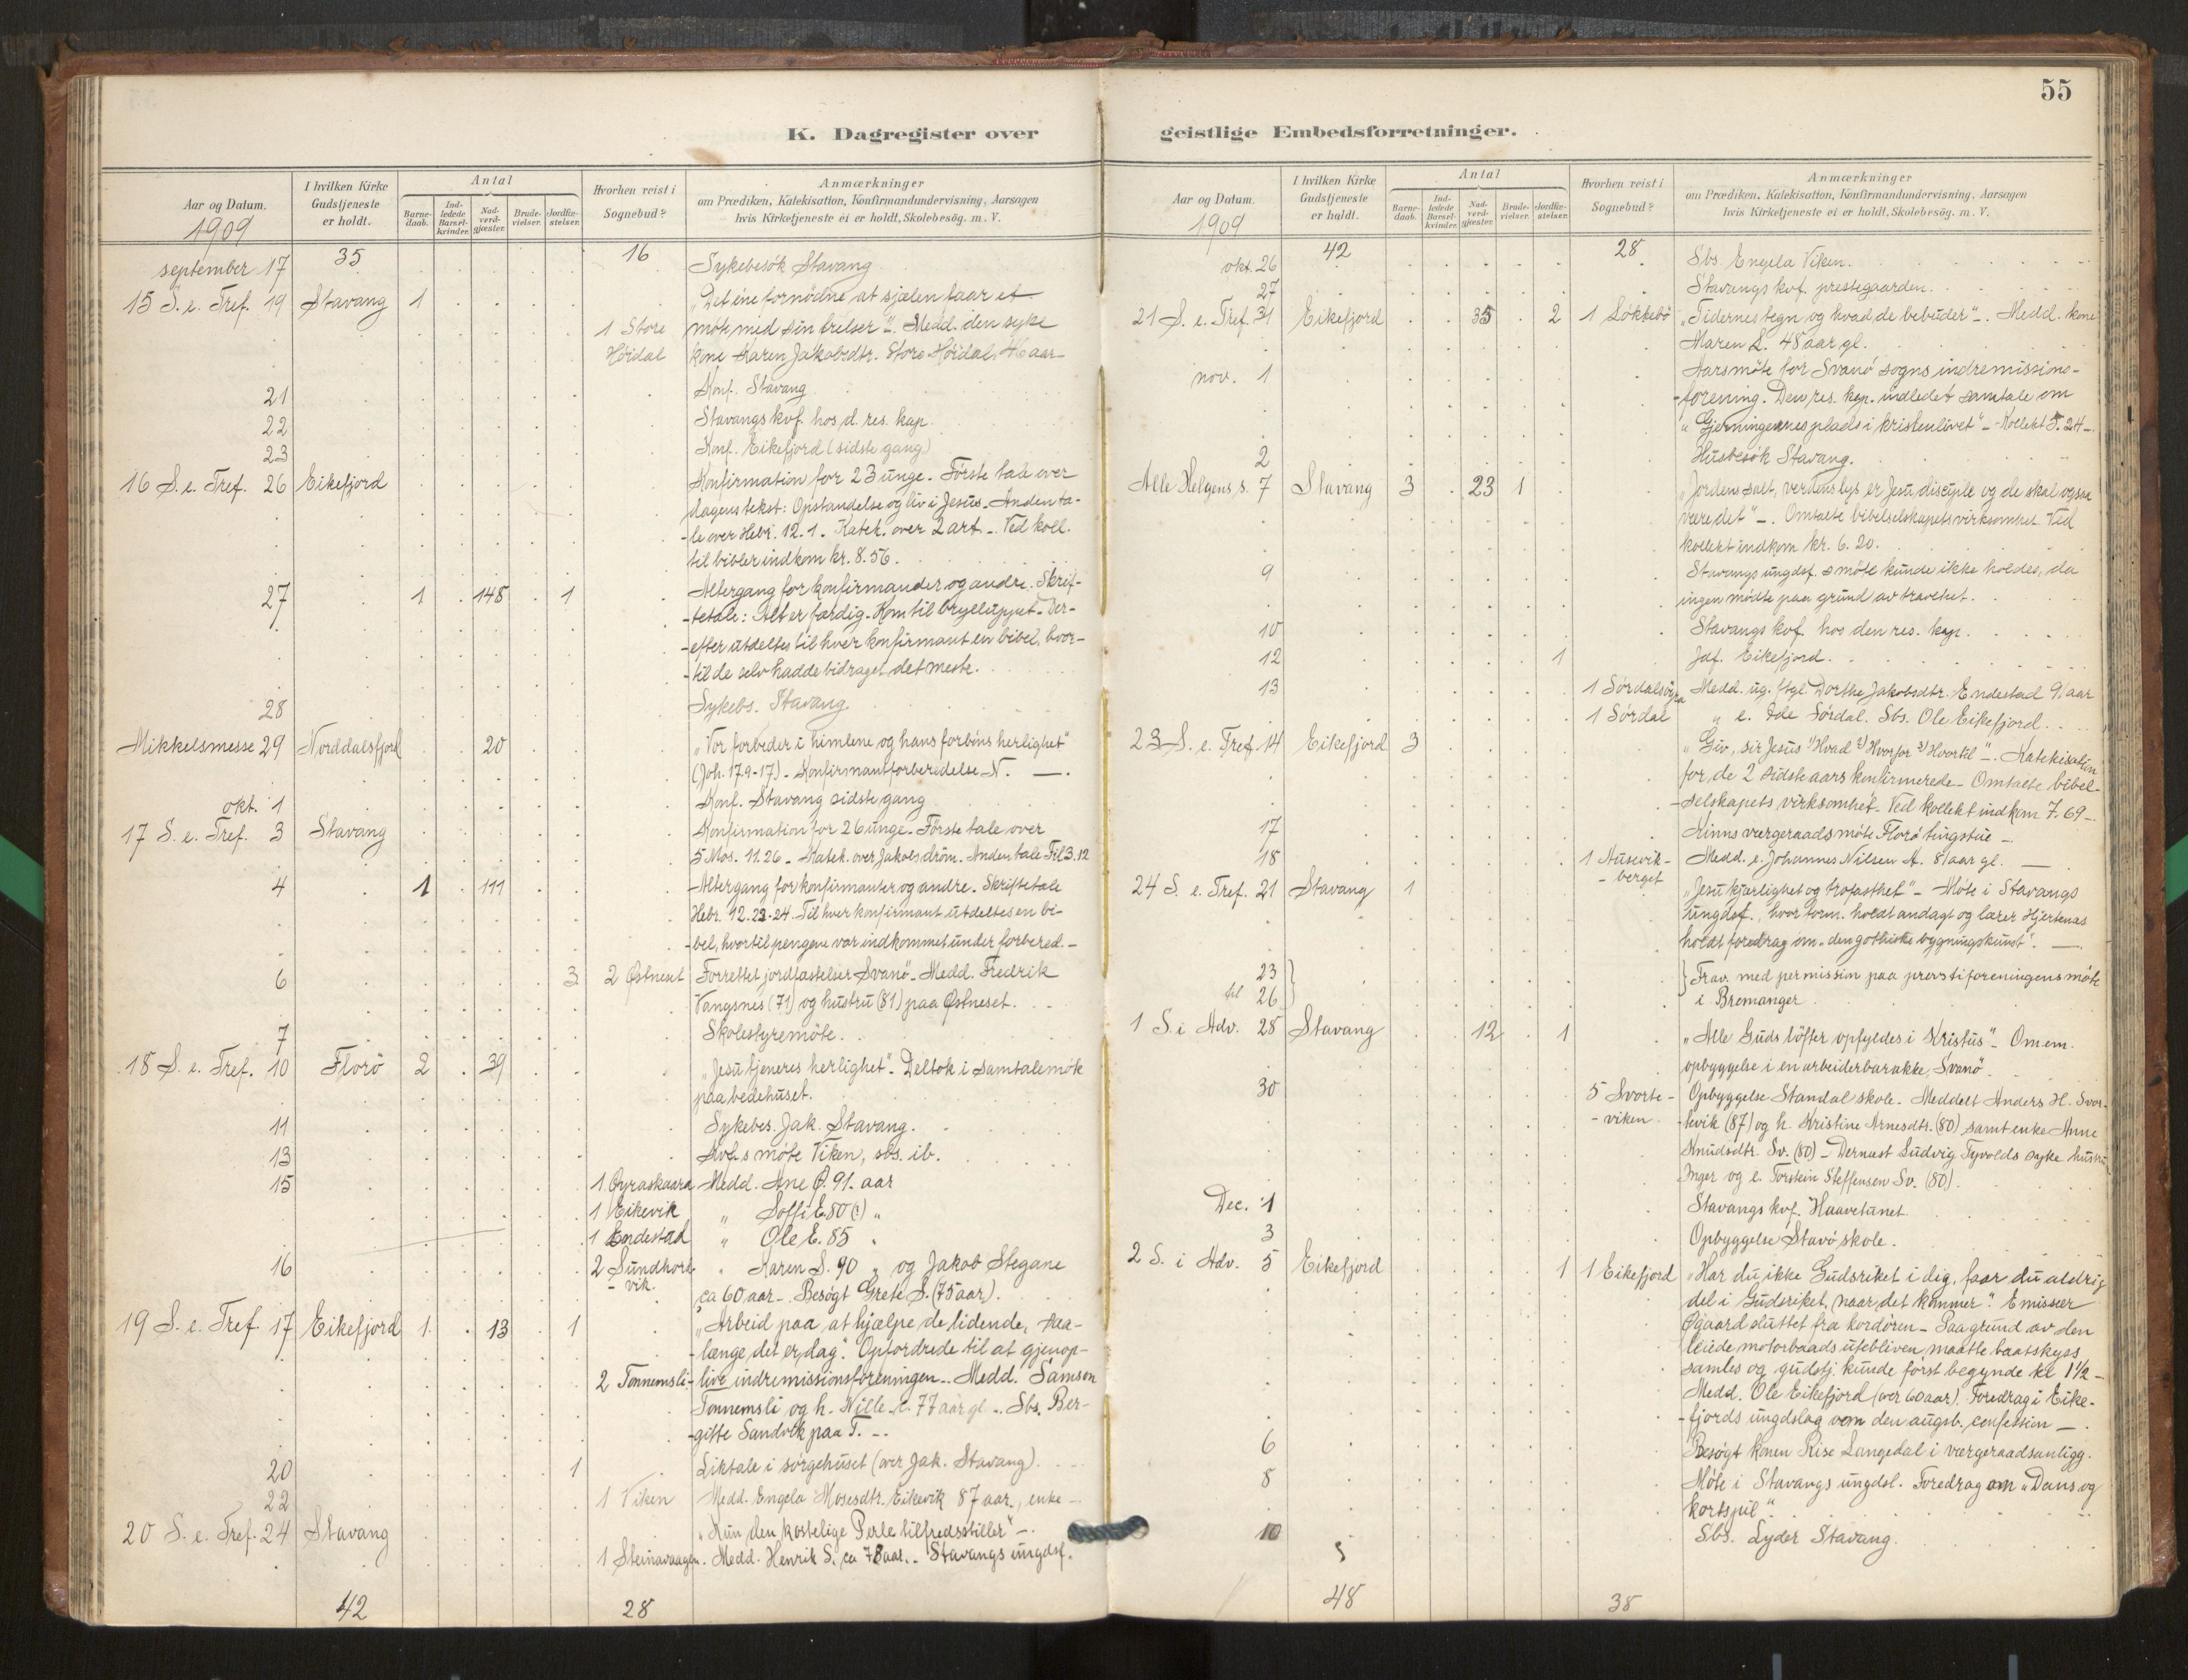 55
K. Dagregister over
Aar og Datum.
1909
I hvilken Kirke Gudstjeneste er holdt.
Antal
Barne-daab.
Ind-ledede Barsel-kvinder.
Nad-verd-gjæster.
Brude-vielser.
Jordfæ-stelser.
Hvorhen reist i Sognebud?
Anmærkninger
om Prædiken, Katekisation, Konfirmandundervisning, Aarsagen
hvis Kirketjeneste ei er holdt, Skolebesög. m. V.
35 16
september 17 Sykebesök Stavang
15 S. e. Tref. 19 Stavang 1 „Det ene fornödne, at sjælen faar et
1 Store möte med sin frelser“. Medd. den syke
Höidal kone Karen Jakobsdtr. Store Höidal, 46 aar
21 Konf. Stavang
22 Stavangs kvf. hos d. res. kap.
23 Konf. Eikefjord (sidste gang)
16 S. e. Tref. 26 Eikefjord Konfirmation for 23 unge. Förste tale over
dagens tekst: Opstandelse og liv i Jesus. Anden ta-
-le over Hebr. 12.1. Katek. over 2 art. - Ved koll.
til bibler indkom kr. 8.56.
27 1 148 1 Altergang for konfirmander og andre. Skrif-
-tetale: Alt er færdig. Kom til bryllupput. Der-
-efter utdeltes til hver konfirmant en bibel, hvor-
-til de selv hadde bidraget det meste.
28 Sykebs. Stavang.
Mikkelsmesse 29 Norddalsfjord 20 „Vor forbeder i himlene og hans forböns herlighet“
(Joh. 17.9-17). Konfirmantforberedelse N. —.
okt. 1 Konf. Stavang sidste gang
17 S. e. Tref. 3 Stavang Konfirmation for 26 unge. Förste tale over
5 Mos. 11.26 - Katek. over Jakobs dröm. Anden tale Fil 3.12
4 1 111 Altergang for konfirmanter og andre. Skriftetale
Hebr. 12.22-24. Til hver konfirmant utdeltes en bi-
-bel, hvortil pengene var indkommet under forbered. -
6 3 2 Østneset Forrettet jordfæstelser Svanö. Medd. Fredrik
Vangsnes (71) og hustru (81) paa Østneset.
7 Skolestyremöte.
18 S. e. Tref. 10 Florö 2 39 „Jesu tjeneres herlighet“. Deltok i samtalemöte
paa bedehuset.
11 Sykebes. Jak. Stavang.
13 Kvf.s möte Viken, sbs. ib.
15 1 Öyraskaara Medd. Ane Ø. 91. aar
1 Eikevik „ Soffi E. 80 (?) „
1 Endestad „ Ole E. 85 „
16 2 Sundhole- „ Karen S. 90 „ og Jakob Stegane
- vik. ca 60 aar -. Besögt Grete S. (75 aar).
19 S. e. Tref. 17 Eikefjord 1 13 1 „Arbeid paa, at hjælpe de lidende, saa-
-længe det er dag“. Opfordrede til at gjenop-
2 Tonnemsli -live indremissionsforeningen. Medd. Samson
Tonnemsli og h. Nille c. 77 aar gl. Sbs. Ber-
-gitte Sandvik paa T. -.
20 1 Liktale i sörgehuset (over Jak. Stavang).
22 1 Viken Medd. Engela Mosesdtr. Eikevik 87 aar, enke -
20 S. e. Tref. 24 Stavang „Kun den kostelige Perle tilfredsstiller“ -.
1 Steinavaagen. Medd. Henrik S. ca 78 aar. Stavangs ungdsf.
42 28
geistlige Embedsforretninger.
Aar og Datum.
1909
I hvilken Kirke Gudstjeneste er holdt.
Antal
Barne-daab.
Ind-ledede Barsel-kvinder.
Nad-verd-gjæster.
Brude-vielser.
Jordfæ-stelser.
Hvorhen reist i Sognebud?
Anmærkninger
om Prædiken, Katekisation, Konfirmandundervisning, Aarsagen
hvis Kirketjeneste ei er holdt, Skolebesög. m. V.
42 28
okt. 26 Sbs. Engela Viken.
27 Stavangs kvf. prestegaarden.
21 S. e. Tref. 31 Eikefjord 35 2 1 Løkkebö „Tidernes tegn og hvad de bebuder“ -. Medd. kone
Maren L. 48 aar gl.
nov. 1 Aarsmöte for Svanö sogns indremissions-
-forening. Den res. kap. indledet samtale om
„Gjerningernes plads i kristenlivet“ - Kollekt 5.24 -.
2 Husbesök Stavang.
Alle Helgens s. 7 Stavang 3 23 1 „Jordens salt, verdens lys er Jesu disciple og de skal ogsaa
være det“ -. Omtalte bibelselskapets virksomhet. Ved
kollekt indkom kr. 6.20.
9 Stavangs ungdsf.s möte kunde ikke holdes, da
ingen mödte paa grund av travelhet.
10 Stavangs kvf. hos den res. kap.
12 1 Jdf. Eikefjord.
13 1 Sördalsöyra Medd. ug. ftgl. Dorthe Jakobsdtr. Endestad 91 aar
1 Sördal „ e. Ide Sördal. Sbs. Ole Eikefjord.
23 S. e. Tref. 14 Eikefjord 3 „Giv, sir Jesus 1) Hvad 2) Hvorfor 3) Hvortil“ -. Katekisation
for de 2 sidste aars konfirmerede. Omtalte bibel-
-selskapets virksomhet. Ved kollekt indkom 7.69 -.
17 Kinns værgeraads möte Florö tingstue -
18 1 Ausevik- Medd. e. Johannes Nilsen A. 81 aar gl. —
- berget
24 S. e. Tref. 21 Stavang 1 „Jesu kjærlighet og trofasthet“ - Möte i Stavangs
ungdsf., hvor form. holdt andagt og lærer Hjertenas
holdt foredrag om „den gothiske bygningskunst“. —.
23 } } Frav. med permission paa prevstiforeningens möte
til 26 i Bremanger
1 S. i Adv. 28 Stavang 12 1 „Alle Guds löfter opfyldes i Kristus“ - Om em.
opbyggelse i en arbeiderbarakke, Svanö.
30 5 Svorte- Opbyggelse Standal skole. Meddelt Anders H. Svor-
- viken -tevik (87) og h. Kristine Arnesdtr. (80) samt enke Anne
Knudsdtr. Sv. (80) - Dernæst Ludvig Tyvolds syke hustru
Inger og e. Torstein Steffensen Sv. (80).
Dec. 1 Stavangs kvf. Haavetunet
3 Opbyggelse Stavö skole.
2 S. i Adv. 5 Eikefjord 1 1 Eikefjord „Har du ikke Gudsriket i dig, faar du aldrig
del i Gudsriket, naar det kommer“. Emissær
Øgaard sluttet fra kordören - Paa grund av den
leiede motorbaads utebliven maatte baatskyss
samles og gudstj. kunde först begynde kl 1½ -
Medd. Ole Eikefjord (over 60 aar). Foredrag i Eike-
-fjords ungdslag om den augsb. confession -.
6 Besögt konen Rise Langedal i værgeraadsanligg.
8 Möte i Stavangs ungdsl. Foredrag om „Dans og
kortspil“.
10 Sbs. Lyder Stavang.
48 38